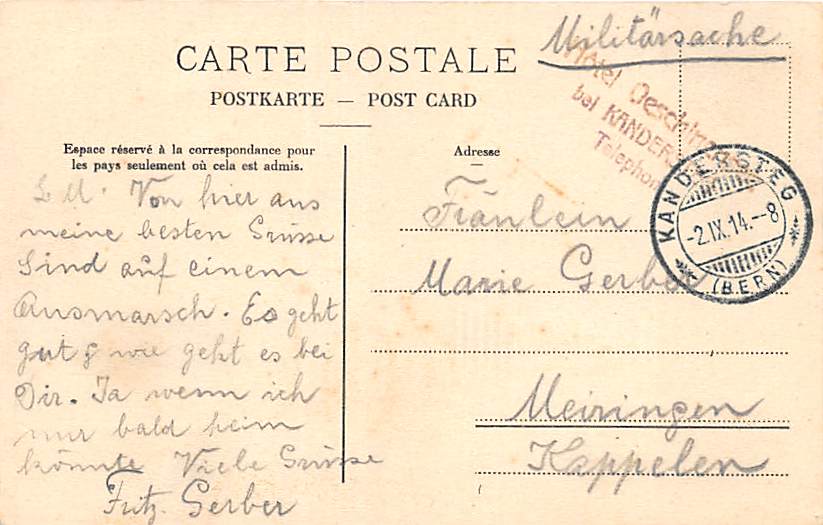 Militärsache
CARTE POSTALE
POSTKARTE — POST CARD
Hotel Oeschin
bei KANDERS
Telephon
Espace réservé à la correspondance pour
les pays seulement où cela est admis.
Adresse
KANDERSTEG
-2.IX.14.--8
(BERN)
L M. Von hier aus
meine besten Grüsse
Sind auf einem
Ausmarsch. Es geht
gut & wie geht es bei
Dir. Ja wenn ich
nur bald heim
könnte Viele Grüsse
Fritz. Gerber
Fräulein
Marie Gerber
Meiringen
Kappelen